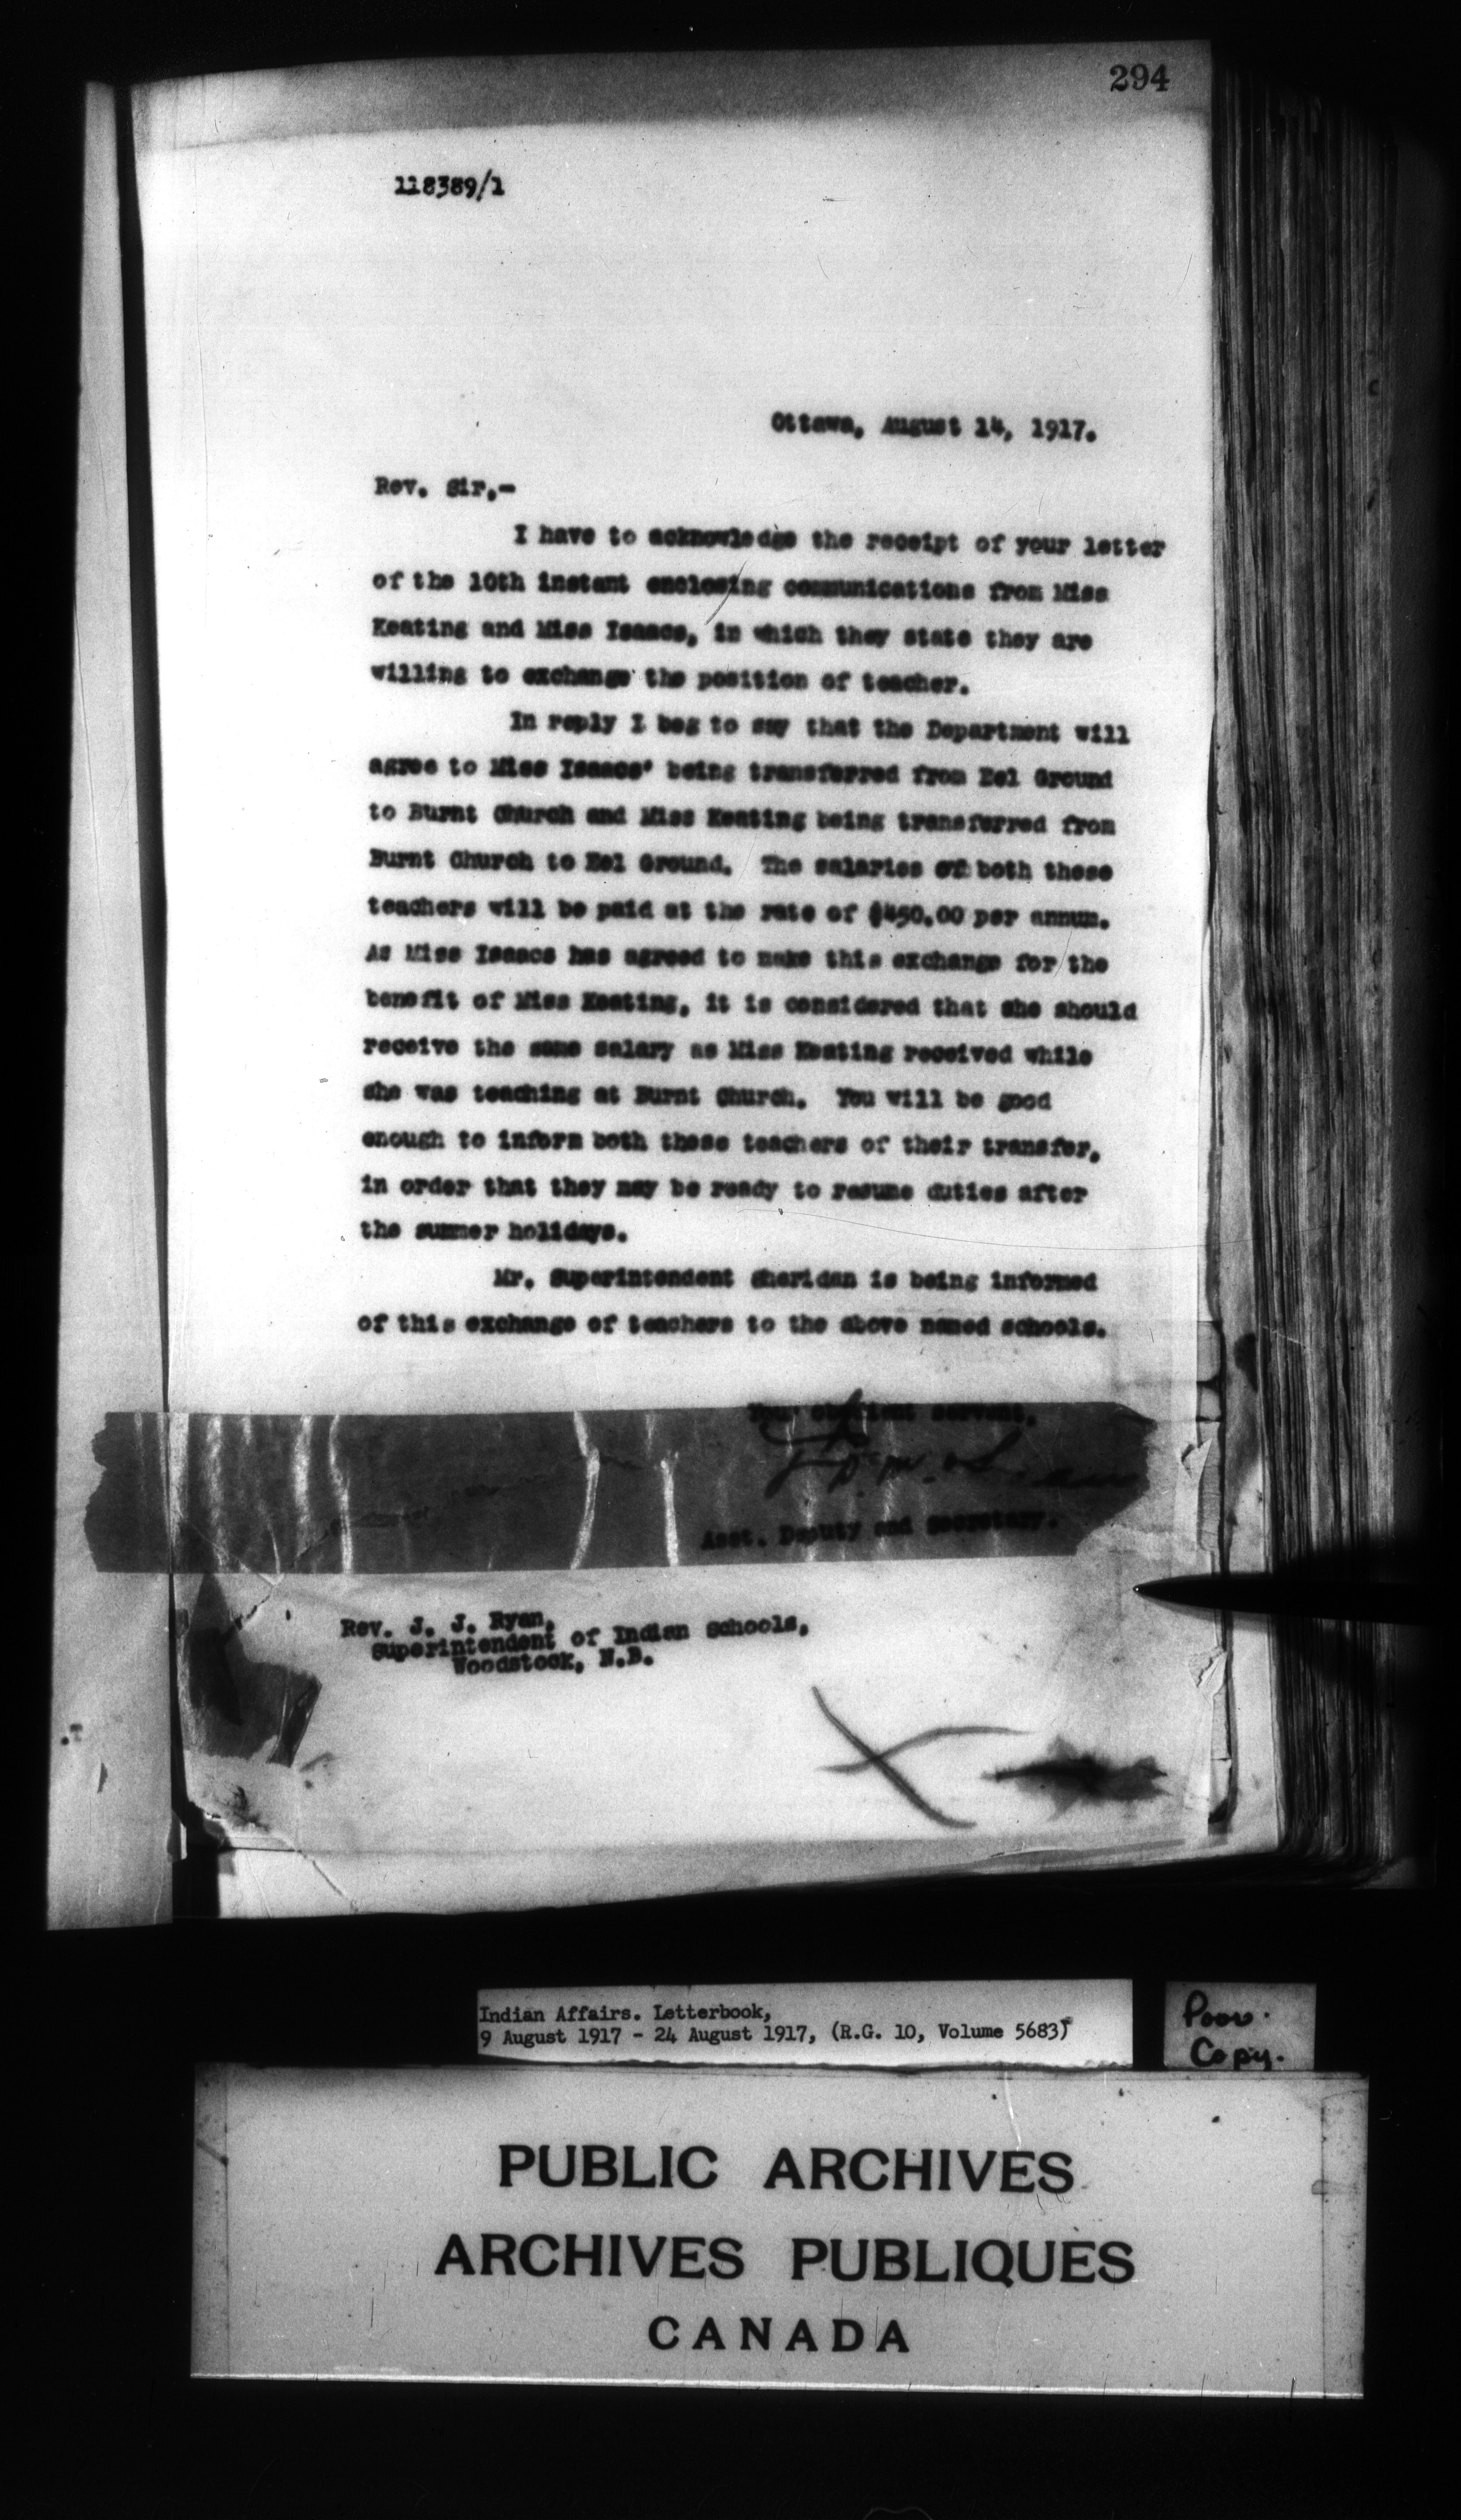 294
118389/1
Ottawa, August 14, 1917.
Rev. Sir,-
I have to acknowledge the receipt of your letter
of the 10th instant enclosing communications from Miss
Keating and Miss Isaacs, in which they state they are
willing to exchange the position of teacher.
In reply I beg to say that the Department will
agree to Miss Isaacs' being transferred from Eel Ground
to Burnt Church and Miss Keating being transferred from
Burnt Church to Eel Ground. The salaries of both these
teachers will be paid at the rate of $450.00 per annum.
As Miss Isaacs has agreed to make this exchange for the
benefit of Miss Keating, it is considered that she should
receive the same salary as Miss Keating received while
she was teaching at Burnt Church. You will be good
enough to inform both these teachers of their transfer,
in order that they may be ready to resume duties after
the summer holidays.
Mr. Superintendent Sheridan is being informed
of this exchange of teachers to the above named schools.
Your obedient servant,
Asst. Deputy and Secretary.
Rev. J. J. Ryan,
Superintendent of Indian Schools,
Woodstock, N.B.
Indian Affairs. Letterbook,
9 August 1917 - 24 August 1917, (R.G. 10, Volume 5683)
Poor.
Copy.
PUBLIC ARCHIVES
ARCHIVES PUBLIQUES
CANADA